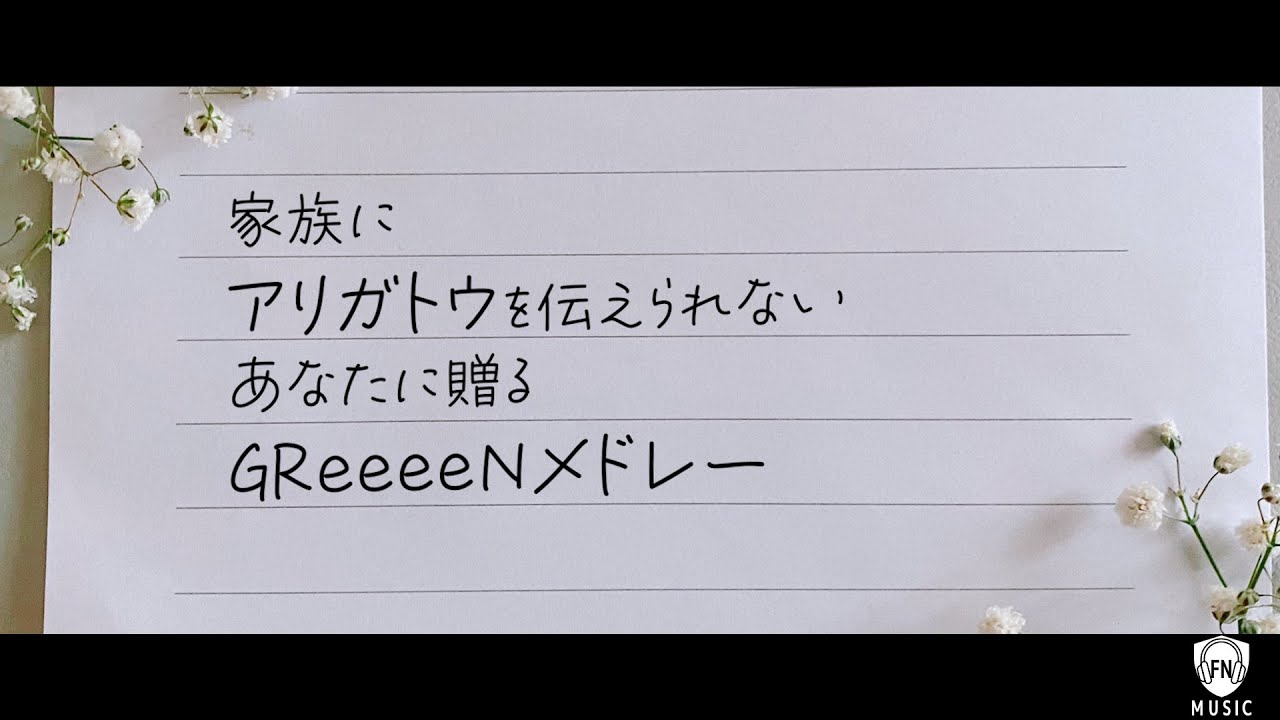 家族に
アリガトウを伝えられない
あなたに贈る
GReeeeNメドレー
FN
MUSIC